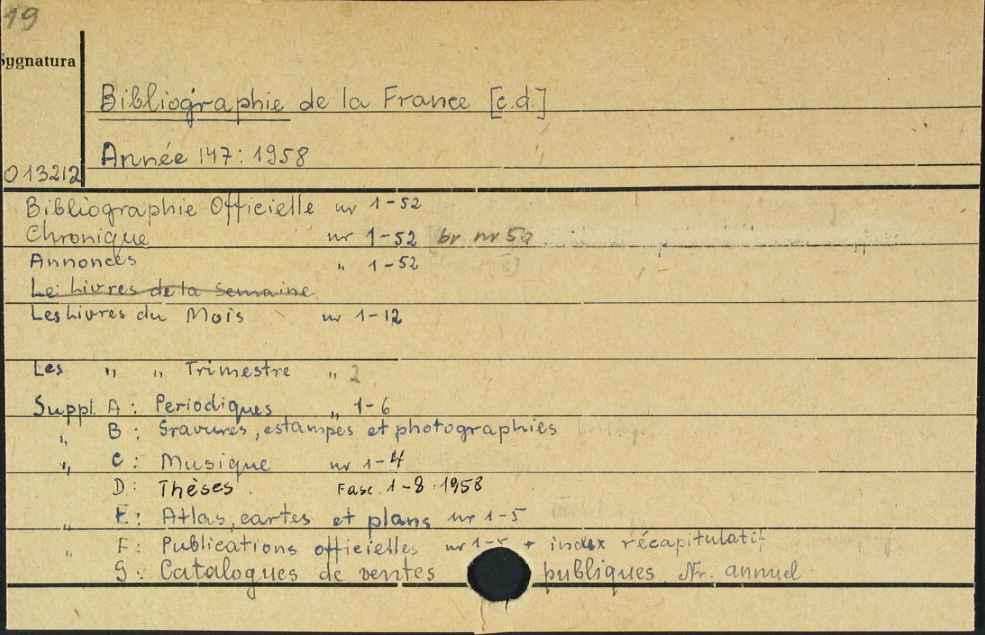 19
Sygnatura
Bibliographie de la France [c.d.]
Année 147: 1958
013212
Bibliographie Officielle nr 1-52
Chronique nr 1-52 [br nr 52
Annonces " 1-52
Les Livres de la Semaine
Les Livres du Mois nr 1-12
Les " " Trimestre " 2
Suppl. A: Periodiques " 1-6
" B: Gravures, estampes et photographies
" C: Musique nr 1-4
D: Thèses Fasc. 1-8. 1958
" E: Atlas, cartes et plans nr 1-5
" F: Publications officielles nr + index récapitulatif
G: Catalogues de ventes publiques Nr. annuel